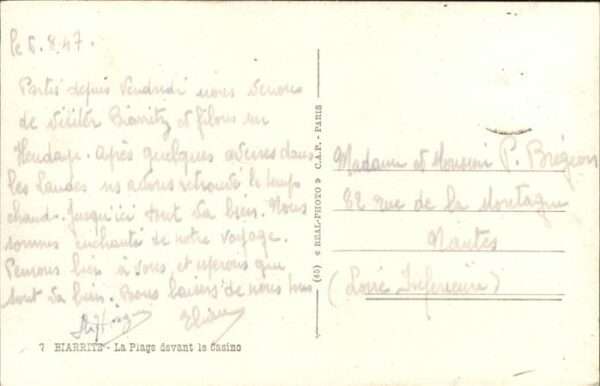 le 6.8.47.
Partis depuis Vendredi nous venons
de visiter Biarritz et filons sur
Hendaye. Après quelques averses dans
les Landes ns avons retrouvé le temps
chaud. Jusqu'ici tout va bien. Nous
sommes enchantés de notre voyage.
Pensons bien à vous, et espérons que
tout va bien. Bons baisers de nous tous
7 BIARRITZ - La Plage devant le Casino
(65) « REAL-PHOTO » C.A.P. - PARIS
Madame et Monsieur P. Brégeon
82 rue de la Montagne
Nantes
(Loire Inférieure)